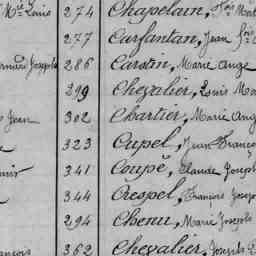 Mie Louis 274 Chapelain, fois Mat
277 Carfantan, Jean fois
Joseph 286 Carotin, Marie Ange
299 Chevalier, Louis Ma
Jean 302 Chartier, Marie Ang
323 Cupel, Jean Franço
341 Coupé, Claude Joseph
344 Crespel, François Joseph
294 Chenu, Marie Josephe
ançois 362 Chevalier, Joseph